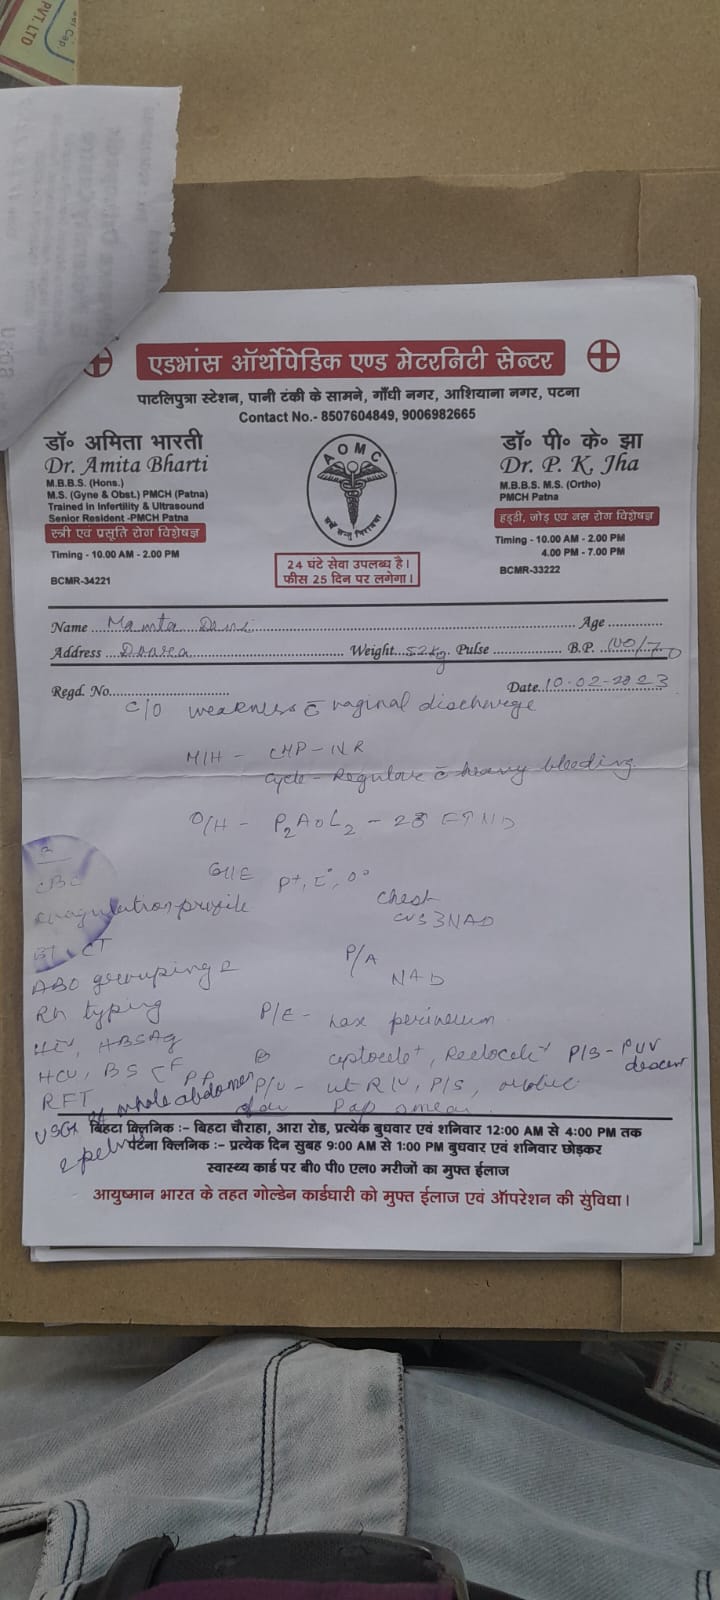 PVT. LTD
एडभांस ऑर्थोपेडिक एण्ड मेटरनिटी सेन्टर
पाटलिपुत्रा स्टेशन, पानी टंकी के सामने, गाँधी नगर, आशियाना नगर, पटना
Contact No.- 8507604849, 9006982665
डॉ० अमिता भारती
Dr. Amita Bharti
M.B.B.S. (Hons.)
M.S. (Gyne & Obst.) PMCH (Patna)
Trained in Infertility & Ultrasound
Senior Resident -PMCH Patna
स्त्री एवं प्रसूति रोग विशेषज्ञ
Timing - 10.00 AM - 2.00 PM
BCMR-34221
AOMC
24 घंटे सेवा उपलब्ध है।
फीस 25 दिन पर लगेगा।
डॉ० पी० के० झा
Dr. P. K. Jha
M.B.B.S. M.S. (Ortho)
PMCH Patna
हड्डी, जोड़ एवं नस रोग विशेषज्ञ
Timing - 10.00 AM - 2.00 PM
4.00 PM - 7.00 PM
BCMR-33222
Name Mamta Devi Age
Address Weight 52kg Pulse B.P.
Regd. No. Date 10-02-2023
C/O weakness c̄ vaginal discharge
M/H -
Cycle - Regular c̄ heavy bleeding
O/H - P2A0L2 -
G/E P+, I°, O°
Chest
CVS NAD
P/A
NAD
P/E - Lax perineum
cystocele+, Rectocele+ P/S - descent
P/V - ut R/V, P/S, mobile
Pap smear
CBC
Coagulation profile
BT, CT
ABO grouping &
Rh typing
HIV, HBSAg
HCV, BS F PP
RFT
USG of whole abdomen
& pelvis
बिहटा क्लिनिक :- बिहटा चौराहा, आरा रोड, प्रत्येक बुधवार एवं शनिवार 12:00 AM से 4:00 PM तक
पटना क्लिनिक :- प्रत्येक दिन सुबह 9:00 AM से 1:00 PM बुधवार एवं शनिवार छोड़कर
स्वास्थ्य कार्ड पर बी० पी० एल० मरीजों का मुफ्त ईलाज
आयुष्मान भारत के तहत गोल्डेन कार्डधारी को मुफ्त ईलाज एवं ऑपरेशन की सुविधा।